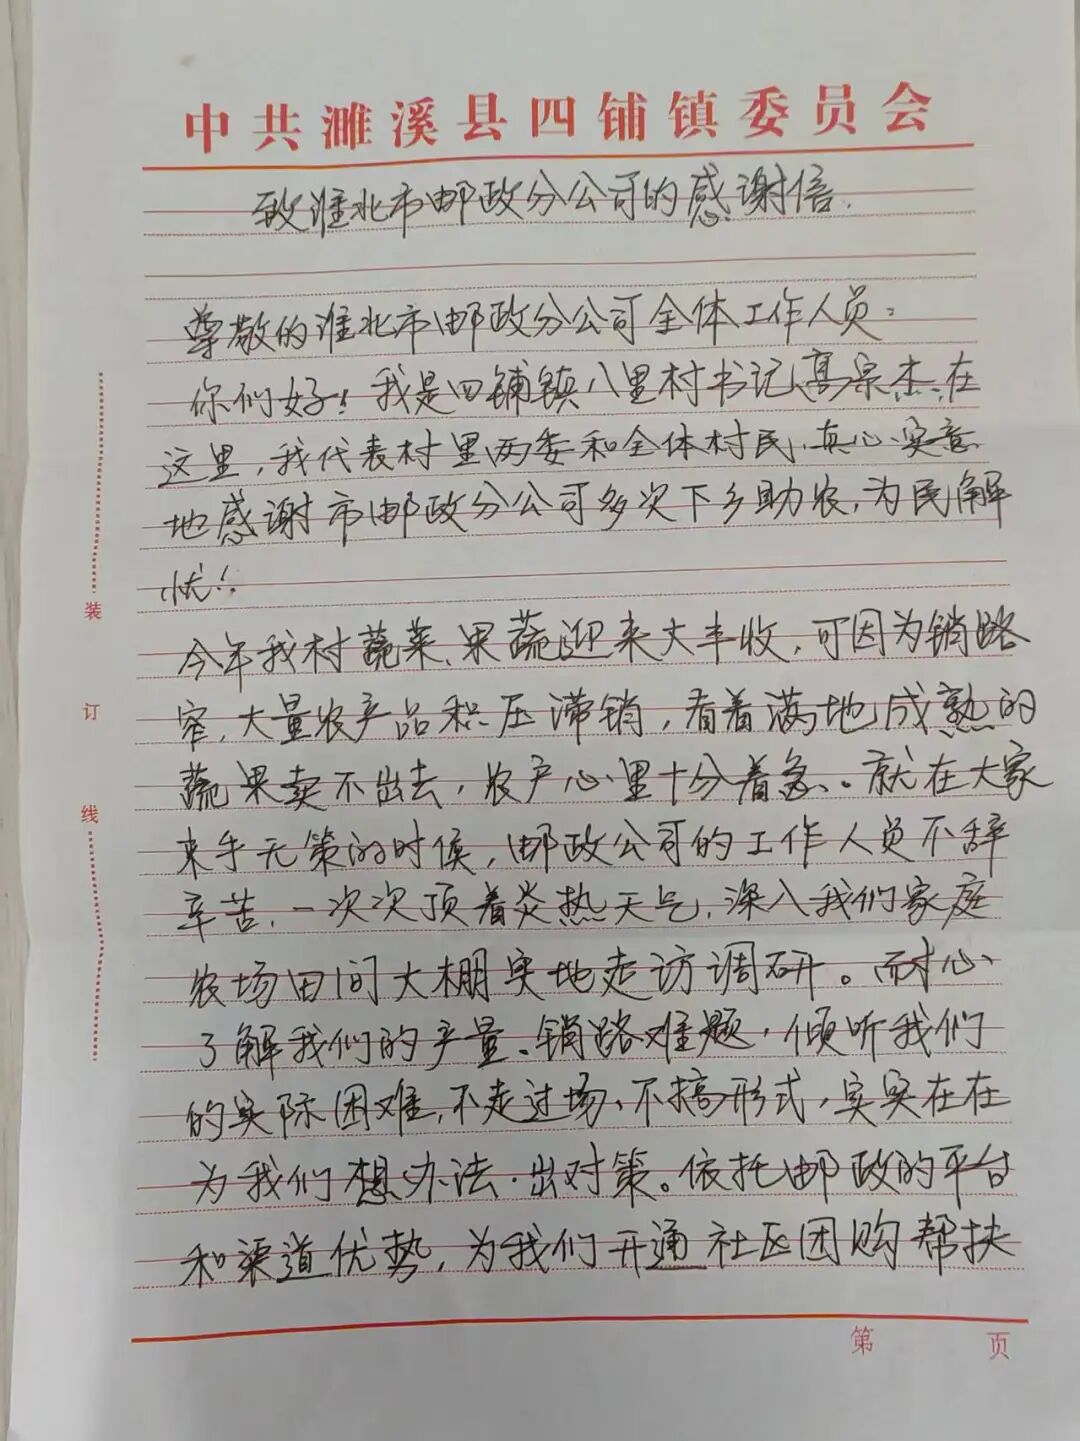 中共濉溪县四铺镇委员会
致淮北市邮政分公司的感谢信.
尊敬的淮北市邮政分公司全体工作人员：
你们好！我是四铺镇八里村书记高宗杰，在
这里，我代表村里两委和全体村民，真心实意
地感谢市邮政分公司多次下乡助农，为民解
忧！
今年我村蔬菜、果蔬迎来大丰收，可因为销路
窄，大量农产品积压滞销，看着满地成熟的
蔬果卖不出去，农户心里十分着急。就在大家
束手无策的时候，邮政公司的工作人员不辞
辛苦，一次次顶着炎热天气，深入我们家庭
农场田间大棚实地走访调研。耐心
了解我们的产量、销路难题，倾听我们
的实际困难，不走过场、不搞形式，实实在在
为我们想办法、出对策。依托邮政的平台
和渠道优势，为我们开通社区团购帮扶
装
订
线
第 页